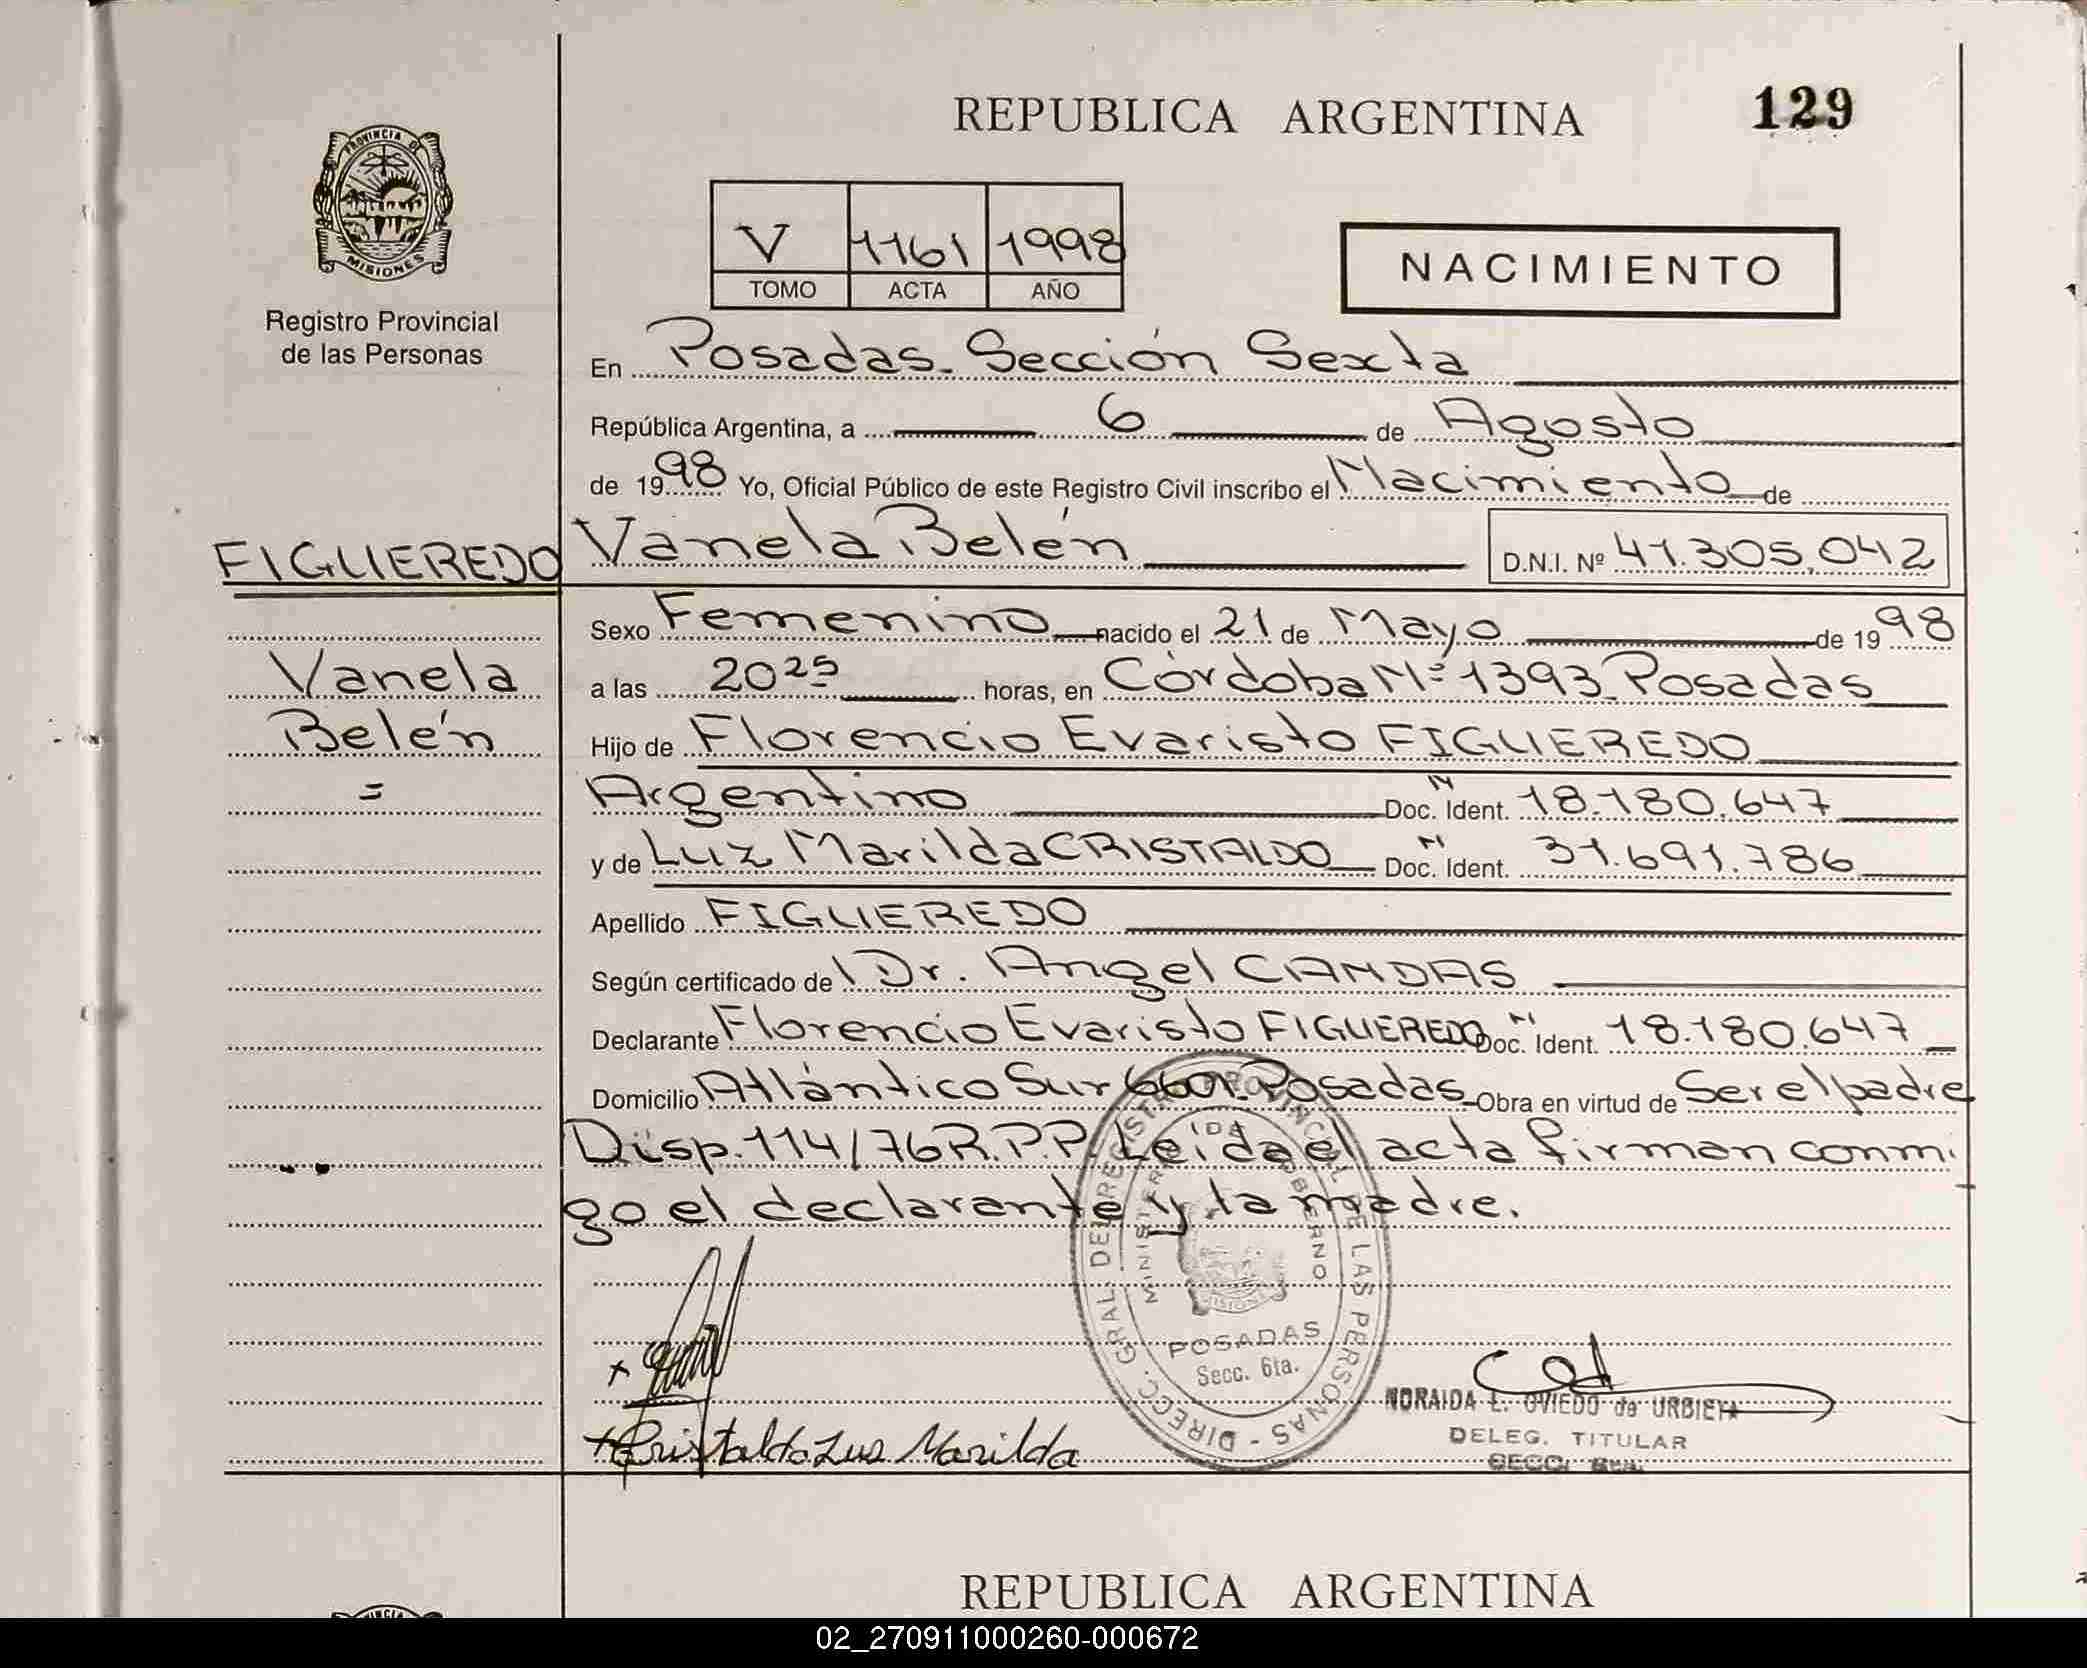 REPUBLICA ARGENTINA
129
PROVINCIA DE
MISIONES
Registro Provincial
de las Personas
V 1161 1998
TOMO ACTA AÑO
NACIMIENTO
En Posadas. Sección Sexta
República Argentina, a 6 de Agosto
de 1998 Yo, Oficial Público de este Registro Civil inscribo el Nacimiento de
FIGUEREDO Vanela Belén D.N.I. Nº 41.305.042
Sexo Femenino nacido el 21 de Mayo de 1998
Vanela
a las 20 25 horas, en Córdoba Nº 1393. Posadas
Belén
Hijo de Florencio Evaristo FIGUEREDO
=
Argentino Doc. N Ident. 18.180.647
y de Luz Marilda CRISTALDO Doc. N Ident. 31.691.786
Apellido FIGUEREDO
Según certificado de Dr. Angel CANDAS
Declarante Florencio Evaristo FIGUEREDO Doc. N Ident. 18.180.647
Domicilio Atlántico Sur 6601. Posadas Obra en virtud de Ser el padre
Disp. 114/76 R.P.P. Leída el acta firman conmi
go el declarante y la madre.
DIRECC. GRAL. DEL REGISTRO PROVINCIAL DE LAS PERSONAS
MINISTERIO DE GOBIERNO
MISIONES
POSADAS
Secc. 6ta.
+
NORAIDA E. OVIEDO de URBIETA
DELEG. TITULAR
SECC. 6ta.
+ Cristaldo Luz Marilda
REPUBLICA ARGENTINA
02_270911000260-000672